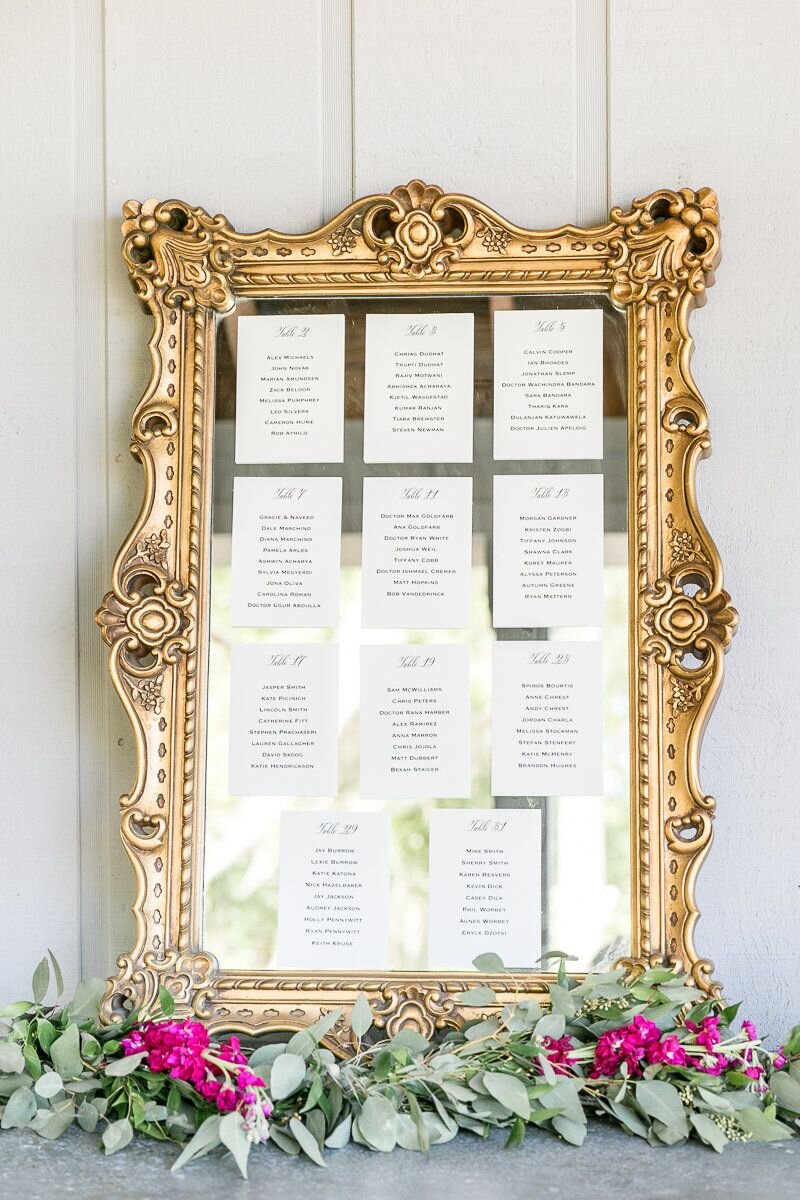 Table 2
ALEX MICHAELS
JOHN NOVAK
MARIAN AMUNDSEN
ZACK BELDON
MELISSA PUMPHREY
LEO SILVERA
CAMERON HUME
ROB ATHILO
Table 3
CHRIAG DUDHAT
TRUPTI DUDHAT
RAJIV MOTWANI
ABHISHEK ACHARAYA
KJETIL WAGGESTAD
KUMAR RANJAN
TIARA BREWSTER
STEVEN NEWMAN
Table 5
CALVIN COOPER
IAN RHOADES
JONATHAN SLEMP
DOCTOR WACHINDRA BANDARA
SARA BANDARA
THARIQ KARA
DULANJAN KATUWAWELA
DOCTOR JULIEN APELOIG
Table 7
GRACIE & NAVEED
DALE MARCHINO
DIANA MARCHINO
PAMELA ARLES
ASHWIN ACHARYA
SYLVIA MEGYERDI
JONA OLIVA
CAROLINA ROMAN
DOCTOR UGUR ABDULLA
Table 11
DOCTOR MAX GOLDFARB
ANA GOLDFARB
DOCTOR RYAN WHITE
JOSHUA WEIL
TIFFANY COBB
DOCTOR ISHMAEL CREMER
MATT HOPKINS
BOB VANDEDRINCK
Table 13
MORGAN GARDNER
KRISTEN ZOGBI
TIFFANY JOHNSON
SHAWNA CLARK
KOREY MAURER
ALYSSA PETERSON
AUTUMN GREENE
RYAN MATTERN
Table 17
JASPER SMITH
KATE PICINICH
LINCOLN SMITH
CATHERINE FITT
STEPHEN PRACHASERI
LAUREN GALLAGHER
DAVID SKOOG
KATIE HENDRICKSON
Table 19
SAM MCWILLIAMS
CHRIS PETERS
DOCTOR RANA HARBER
ALEX RAMIREZ
ANNA MARRON
CHRIS JOJOLA
MATT DUBBERT
BEKAH STAICER
Table 23
SPIROS BOURTIS
ANNE CHREST
ANDY CHREST
JORDAN CHARLA
MELISSA STOCKMAN
STEFAN STENFERT
KATIE MCHENRY
BRANDON HUGHES
Table 29
JAY BURROW
LEXIE BURROW
KATIE KATONA
NICK HAZELBAKER
JAY JACKSON
AUDREY JACKSON
HOLLY PENNYWITT
RYAN PENNYWITT
KEITH KRUSE
Table 31
MIKE SMITH
SHERRY SMITH
KAREN BEAVERS
KEVIN DICK
CASEY DICK
PHIL WORBEY
AGNES WORBEY
ERYCK DZOTSI